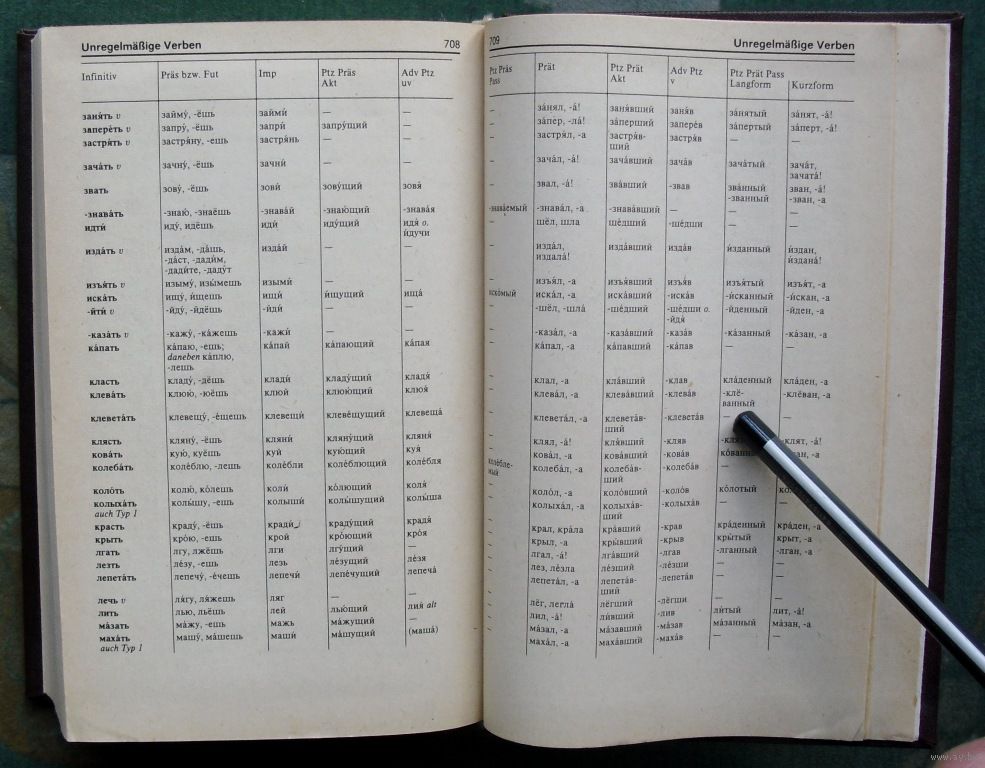 Unregelmäßige Verben 708
Infinitiv Präs bzw. Fut Imp Ptz Präs Akt Adv Ptz uv
заня́ть v займу́, -ёшь займи́ — —
запере́ть v запру́, -ёшь запри́ запру́щий —
застря́ть v застря́ну, -ешь застря́нь — —
зача́ть v зачну́, -ёшь зачни́ — —
звать зову́, -ёшь зови́ зову́щий зовя́
-знава́ть -знаю́, -знаёшь -знава́й -знаю́щий -знава́я
идти́ иду́, идёшь иди́ иду́щий идя́ o.
и́дучи
изда́ть v изда́м, -да́шь, изда́й — —
-да́ст, -дади́м,
-дади́те, -даду́т
изъя́ть v изыму́, изы́мешь изыми́ — —
иска́ть ищу́, и́щешь ищи́ и́щущий ища́
-йти́ v -йду́, -йдёшь -йди́ — —
-каза́ть v -кажу́, -ка́жешь -кажи́ — —
ка́пать ка́паю, -ешь; ка́пай ка́пающий ка́пая
daneben ка́плю,
-лешь
класть кладу́, -дёшь клади́ кладу́щий кладя́
клева́ть клюю́, -юёшь клюй клюю́щий клюя́
клевета́ть клевещу́, -е́щешь клевещи́ клеве́щущий клевеща́
клясть кляну́, -ёшь кляни́ кляну́щий кляня́
кова́ть кую́, куёшь куй кую́щий куя́
колеба́ть коле́блю, -лешь коле́бли коле́блющий коле́бля
коло́ть колю́, ко́лешь коли́ ко́лющий коля́
колыха́ть колы́шу, -ешь колыши́ колы́шущий колы́ша
auch Typ 1
красть краду́, -ёшь кради́ краду́щий крадя́
крыть кро́ю, -ешь крой кро́ющий кро́я
лгать лгу, лжёшь лги лгу́щий —
лезть ле́зу, -ешь лезь ле́зущий ле́зя
лепета́ть лепечу́, -е́чешь лепечи́ лепе́чущий лепеча́
лечь v ля́гу, ля́жешь ляг — —
лить лью, льёшь лей лью́щий лия́ alt
ма́зать ма́жу, -ешь мажь ма́жущий —
маха́ть машу́, ма́шешь маши́ ма́шущий (маша́)
auch Typ 1
709 Unregelmäßige Verben
Ptz Präs Pass Prät Ptz Prät Akt Adv Ptz v Ptz Prät Pass
Langform Kurzform
— за́нял, -а́! заня́вший заня́в за́нятый за́нят, -а́!
— за́пер, -ла́! за́перший запере́в за́пертый за́перт, -а́!
— застря́л, -а застря́в- застря́в — —
ший
— зача́л, -а́! зача́вший зача́в зача́тый зача́т,
зачата́!
— звал, -а́! зва́вший -звав зва́нный зван, -а́!
-зва́нный -зван, -а
-знава́емый -знава́л, -а -знава́вший — — —
— шёл, шла ше́дший -ше́дши — —
— изда́л, изда́вший изда́в и́зданный и́здан,
издала́! и́здана́!
— изъя́л, -а изъя́вший изъя́в изъя́тый изъя́т, -а
иско́мый иска́л, -а иска́вший -иска́в -и́сканный -и́скан, -а
— -шёл, -шла́ -ше́дший -ше́дши o. -и́денный -и́ден, -а
-йдя́
— -каза́л, -а -каза́вший -каза́в -ка́занный -ка́зан, -а
— ка́пал, -а ка́павший -ка́пав — —
— клал, -а кла́вший -клав кла́денный кла́ден, -а
— клева́л, -а клева́вший -клева́в -клё- -клёван, -а
ванный
— клевета́л, -а клевета́в- -клевета́в —
ший
— клял, -а́! кля́вший -кляв -клят, -а́!
— кова́л, -а кова́вший -кова́в
колебле- колеба́л, -а колеба́в- -колеба́в —
мый ший
— коло́л, -а коло́вший -коло́в ко́лотый
— колыха́л, -а колыха́в- -колыха́в — —
ший
— крал, кра́ла кра́вший -крав кра́денный кра́ден, -а
— крыл, -а кры́вший -крыв кры́тый крыт, -а
— лгал, -а́! лга́вший -лгав -лганный -лган, -а
— лез, ле́зла ле́зший -ле́зши — —
— лепета́л, -а лепета́в- -лепета́в — —
ший
— лёг, легла́ лёгший -лёгши — —
— лил, -а́! ли́вший -лив ли́тый лит, -а́!
— ма́зал, -а ма́завший -ма́зав ма́занный ма́зан, -а
— маха́л, -а маха́вший -маха́в — —